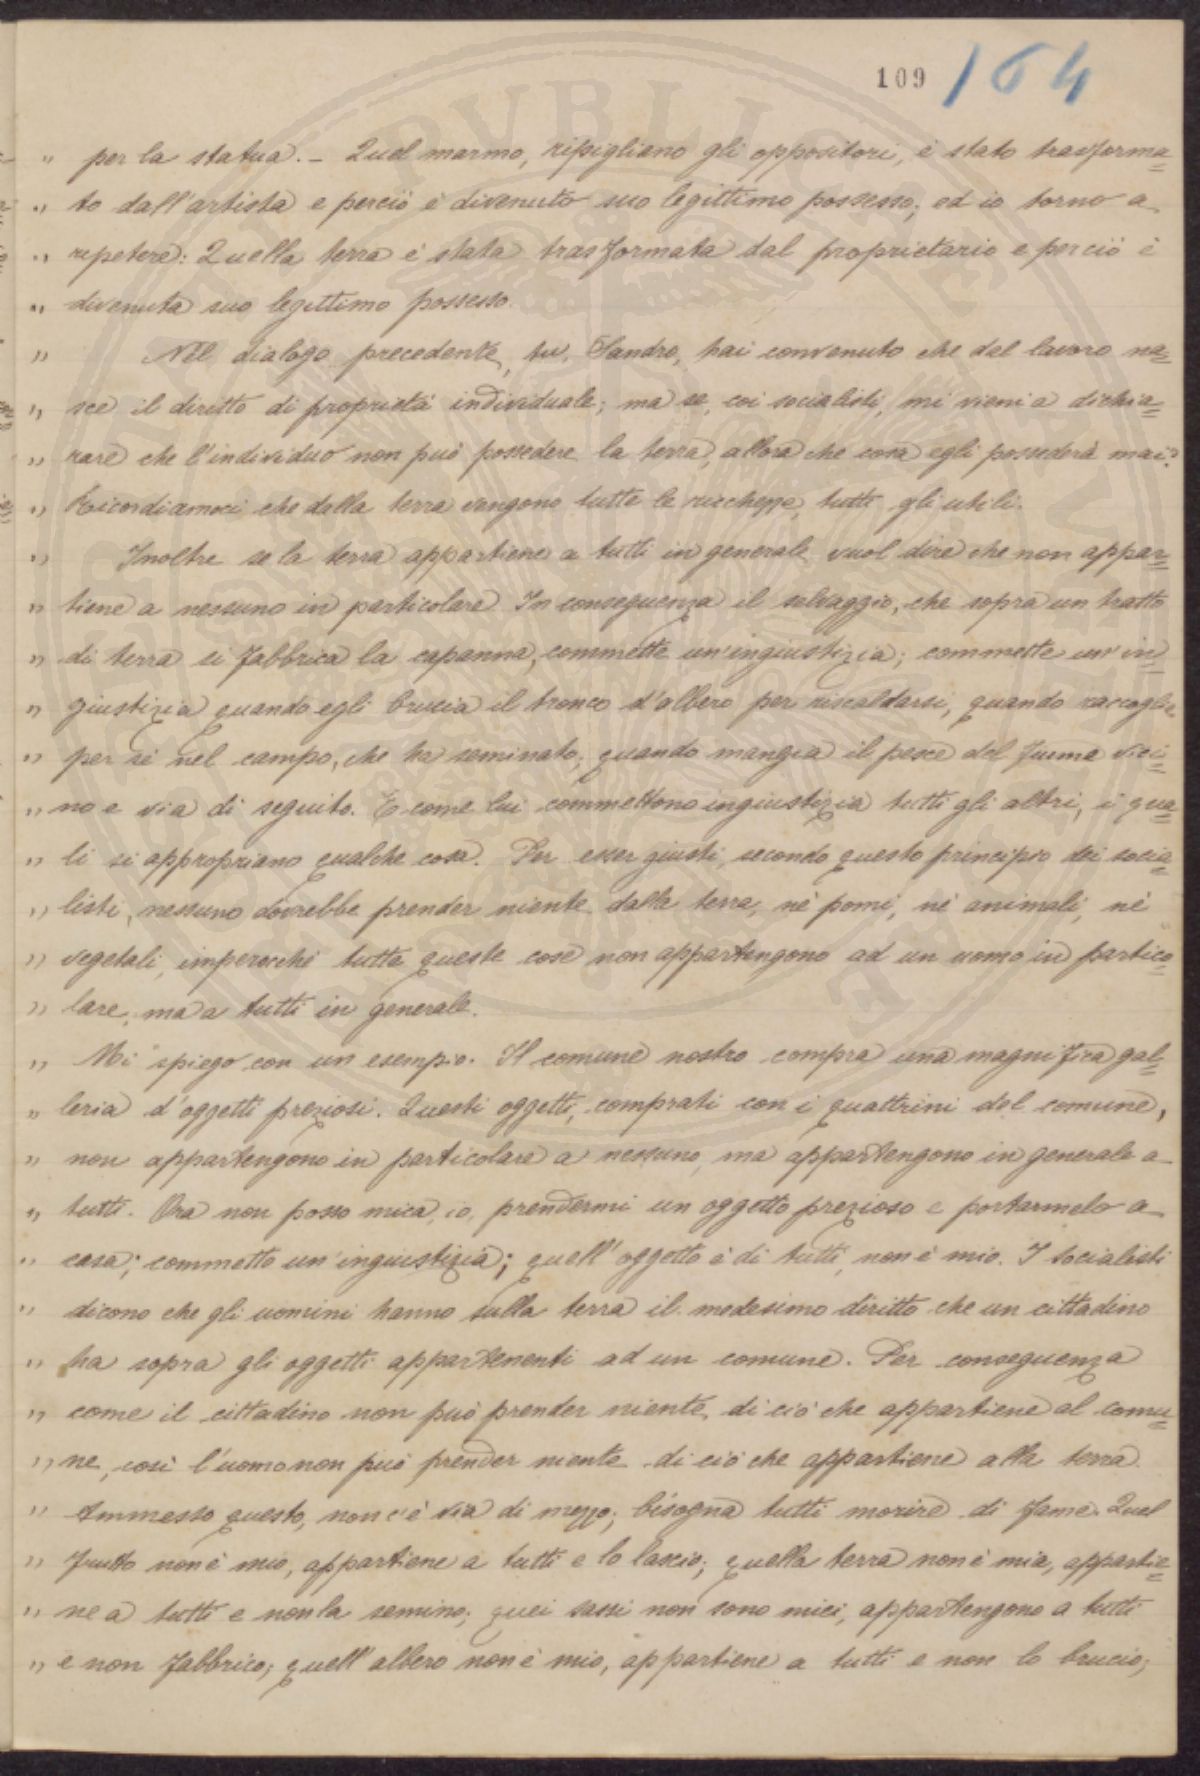 109 164
" per la statua. – Quel marmo, ripigliano gli oppositori, è stato trasforma=
" to dall'artista e perciò è divenuto suo legittimo possesso; ed io torno a
" ripetere: Quella terra è stata trasformata dal proprietario e perciò è
" divenuta suo legittimo possesso.
" Nel dialogo precedente, tu, Sandro, hai convenuto che dal lavoro na=
" sce il diritto di proprietà individuale; ma se, coi socialisti, mi vieni a dichia=
" rare che l'individuo non può possedere la terra, allora che cosa egli possederà mai?
" Ricordiamoci che dalla terra vengono tutte le ricchezze, tutti gli utili.
" Inoltre se la terra appartiene a tutti in generale vuol dire che non appar=
" tiene a nessuno in particolare. In conseguenza il selvaggio, che sopra un tratto
" di terra si fabbrica la capanna, commette un'ingiustizia; commette un'in=
" giustizia quando egli brucia il tronco d'albero per riscaldarsi, quando raccoglie
" per sé nel campo, che ha seminato; quando mangia il pesce del fiume vici=
" no e via di seguito. E come lui commettono ingiustizia tutti gli altri, i qua=
" li si appropriano qualche cosa. Per esser giusti, secondo questo principio dei socia=
" listi, nessuno dovrebbe prender niente dalla terra, nè pomi, nè animali, nè
" vegetali, imperocchè tutte queste cose non appartengono ad un uomo in partico=
" lare, ma a tutti in generale.
" Mi spiego con un esempio. Il comune nostro compra una magnifica gal=
" leria d'oggetti preziosi. Questi oggetti, comprati con i quattrini del comune,
" non appartengono in particolare a nessuno, ma appartengono in generale a
" tutti. Ora non posso mica, io, prendermi un oggetto prezioso e portarmelo a
" casa; commetto un'ingiustizia; quell'oggetto è di tutti, non è mio. I socialisti
" dicono che gli uomini hanno sulla terra il medesimo diritto che un cittadino
" ha sopra gli oggetti appartenenti ad un comune. Per conseguenza
" come il cittadino non può prender niente di ciò che appartiene al comu=
" ne, così l'uomo non può prender niente di ciò che appartiene alla terra.
" Ammesso questo, non c'è via di mezzo; bisogna tutti morire di fame. Quel
" frutto non è mio, appartiene a tutti e lo lascio; quella terra non è mia, appartie=
" ne a tutti e non la semino; quei sassi non sono miei, appartengono a tutti
" e non fabbrico; quell'albero non è mio, appartiene a tutti e non lo brucio;